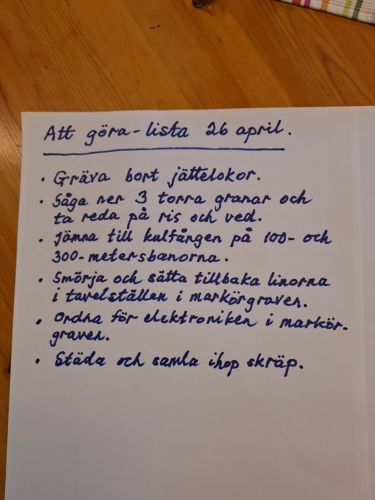 Att göra-lista 26 april.
• Gräva bort jättelokor.
• Såga ner 3 torra granar och
ta reda på ris och ved.
• Jämna till kulfången på 100- och
300-metersbanorna.
• Smörja och sätta tillbaka linorna
i tavelställen i markörgraven.
• Ordna för elektroniken i markör-
graven.
• Städa och samla ihop skräp.